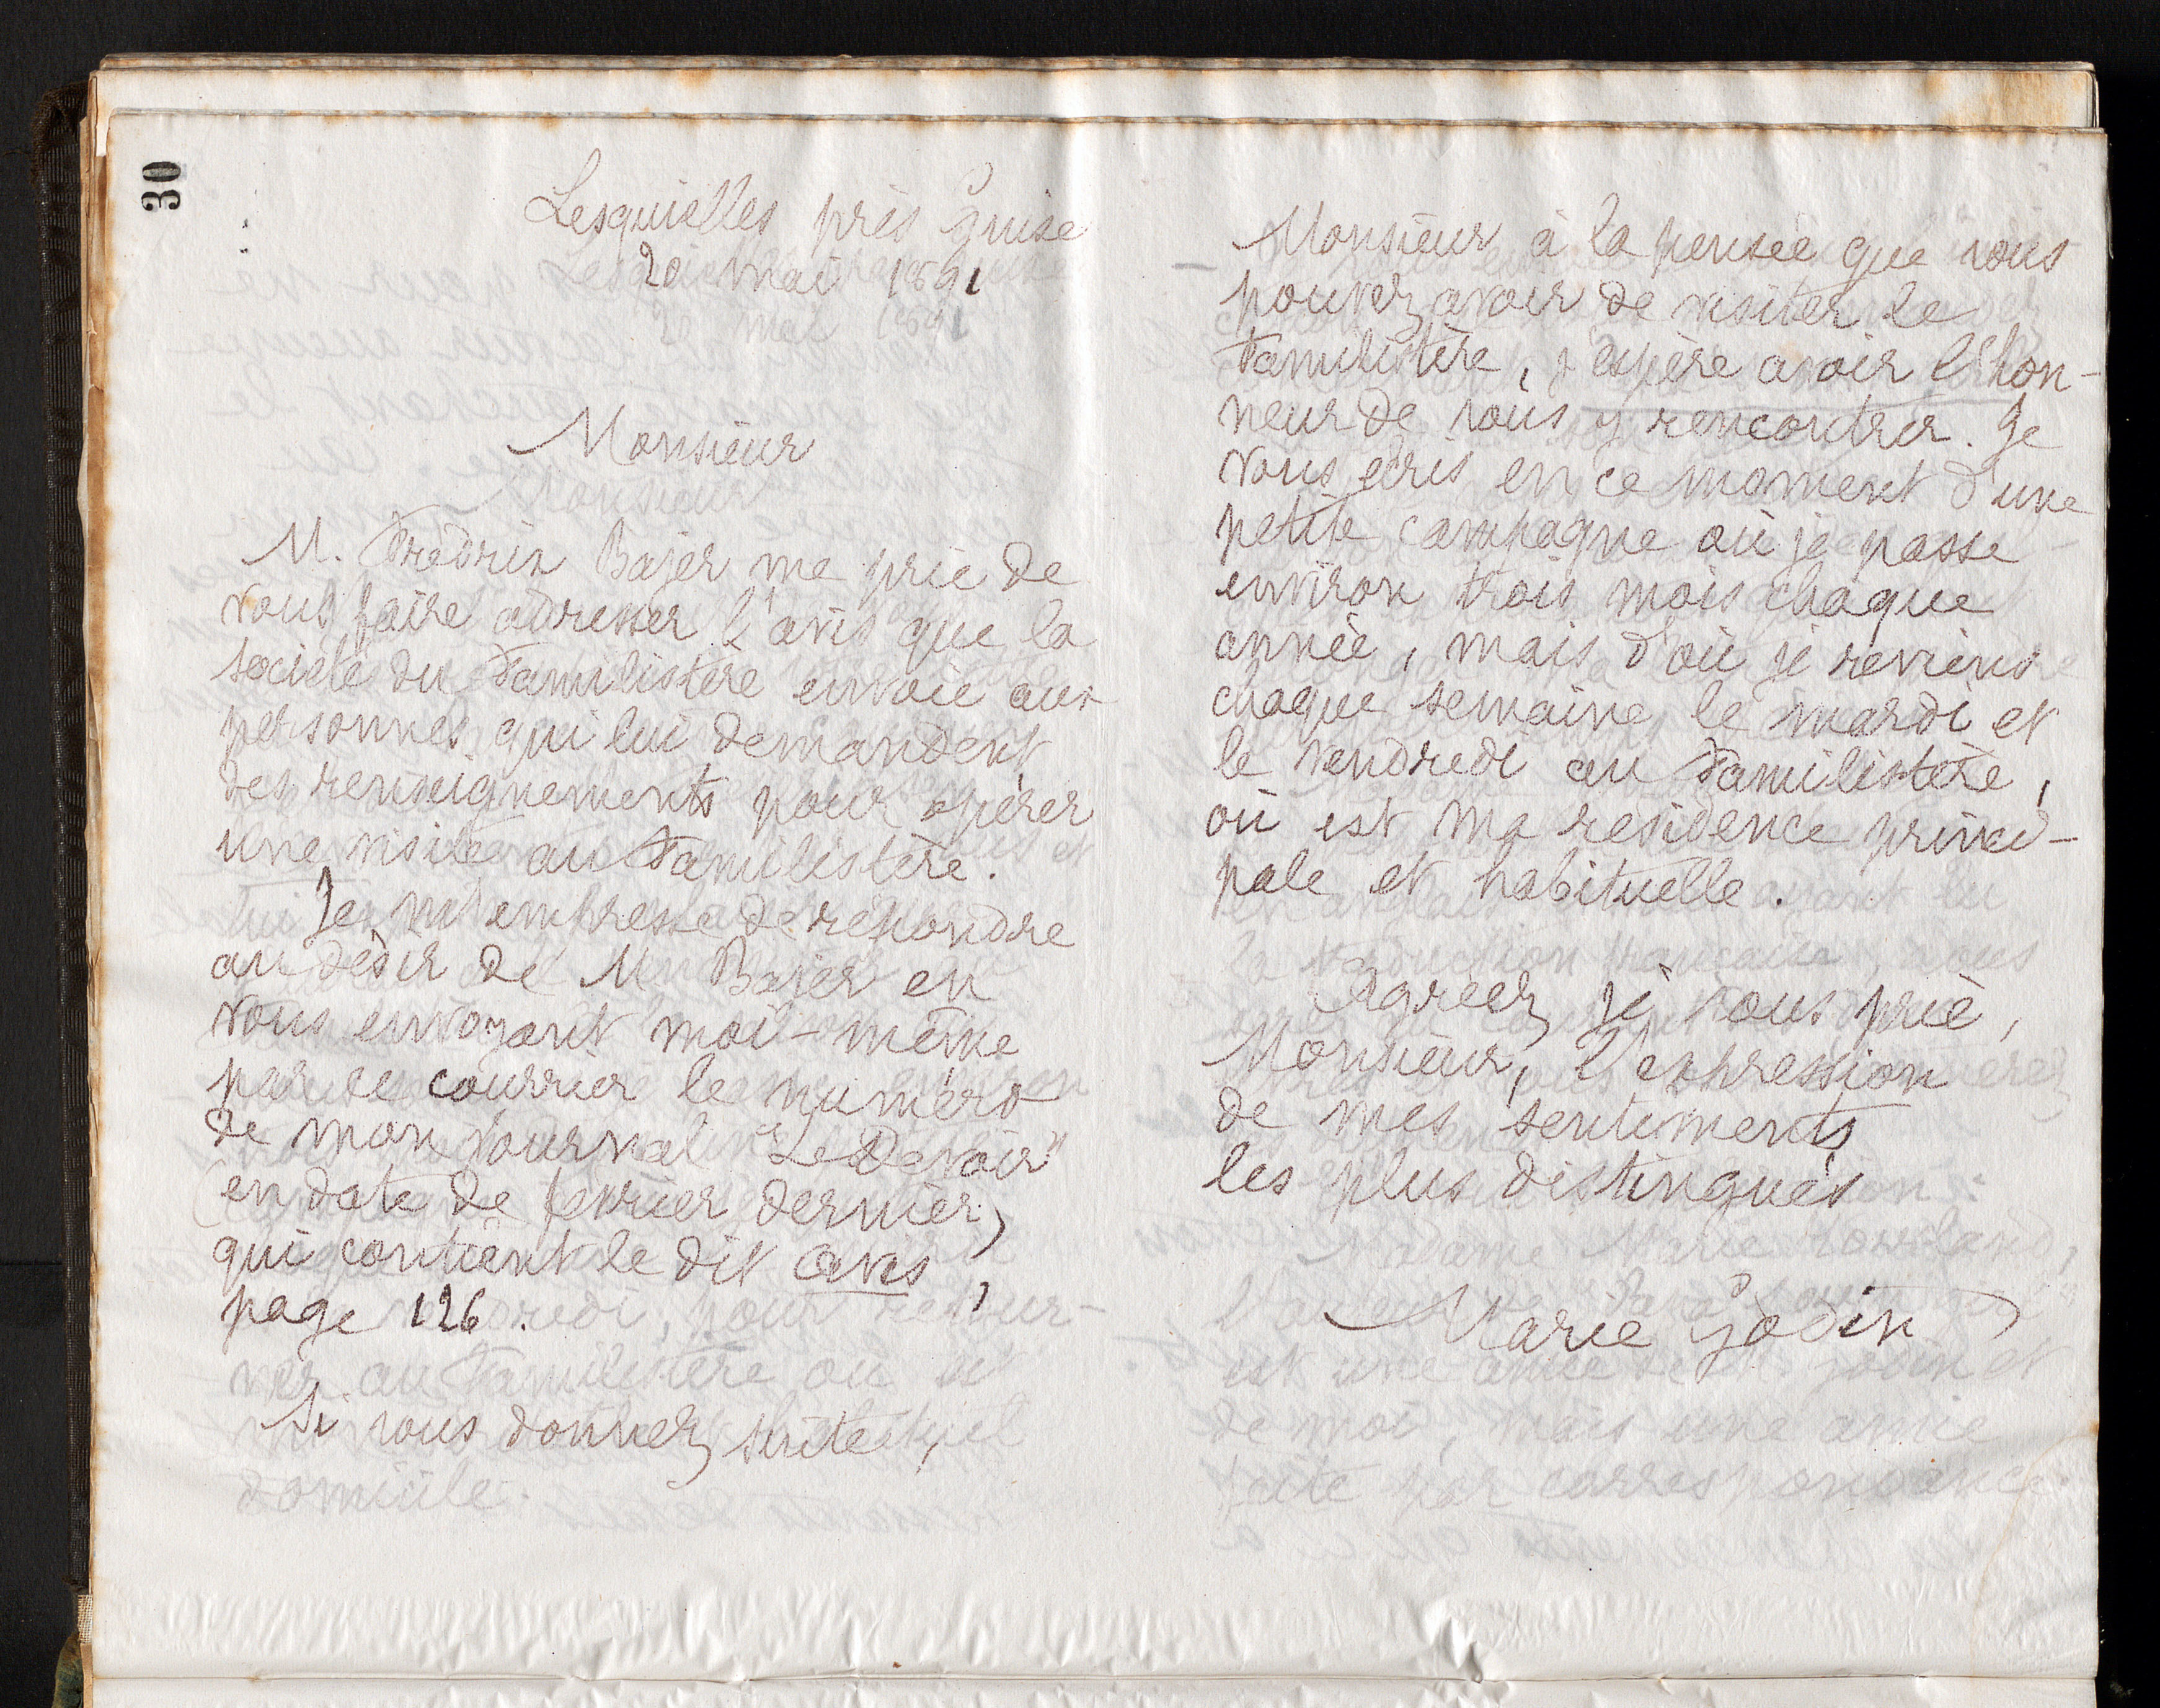 30
Lesquielles près Guise
20 mai 1891
Monsieur
M. Fredrik Bajer me prie de
vous faire adresser l'avis que la
société du Familistère envoie aux
personnes qui lui demandent
des renseignements pour opérer
une visite au Familistère.
Je m'empresse de répondre
au désir de M. Bajer en
vous envoyant moi-même
par ce courrier le numéro
de mon journal "Le Devoir"
(en date de février dernier)
qui contient le dit avis,
page 126.
Si vous donnez suite,
Monsieur à la pensée que vous
pouvez avoir de visiter le
Familistère, j'espère avoir l'hon-
neur de vous y rencontrer. Je
vous écris en ce moment d'une
petite campagne où je passe
environ trois mois chaque
année, mais d'où je reviens
chaque semaine le mardi et
le vendredi au Familistère,
où est ma résidence princi-
pale et habituelle.
Agréez, je vous prie,
Monsieur, l'expression
de mes sentiments
les plus distingués
Marie Godin